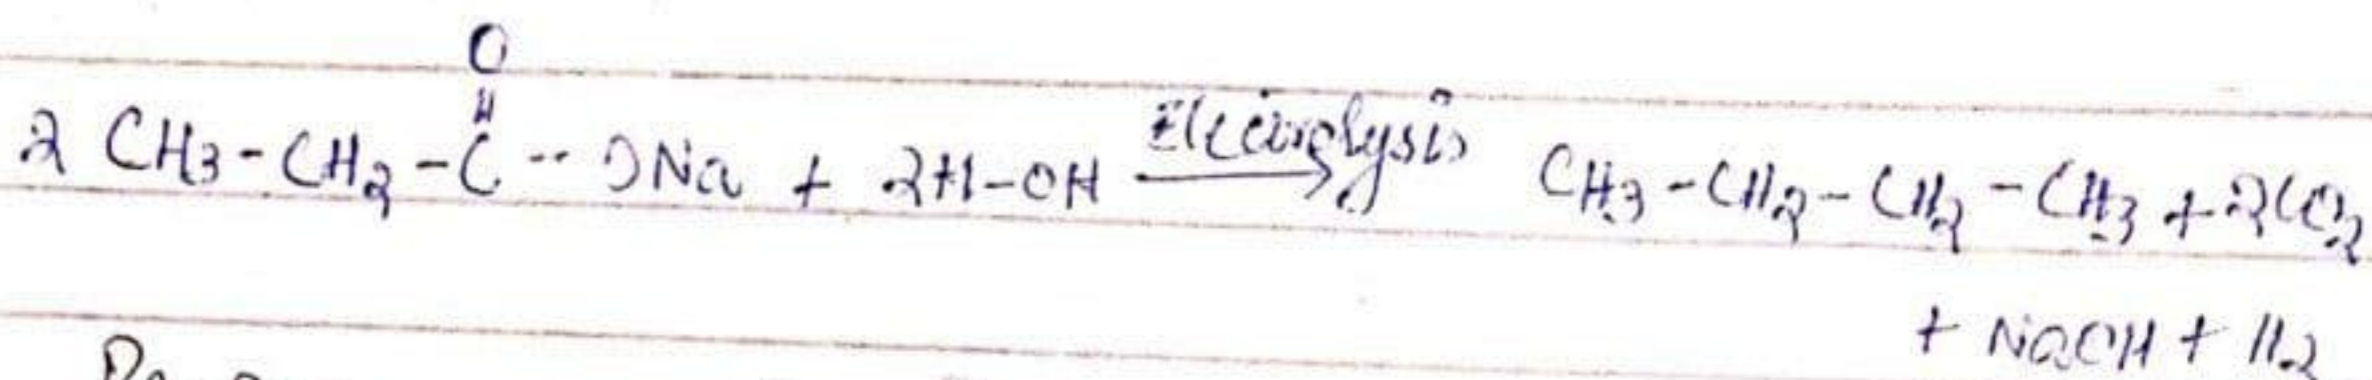 O
||
2 CH3-CH2-C--ONa + 2H-OH Electrolysis → CH3-CH2-CH2-CH3 + 2CO2
+ NaOH + H2